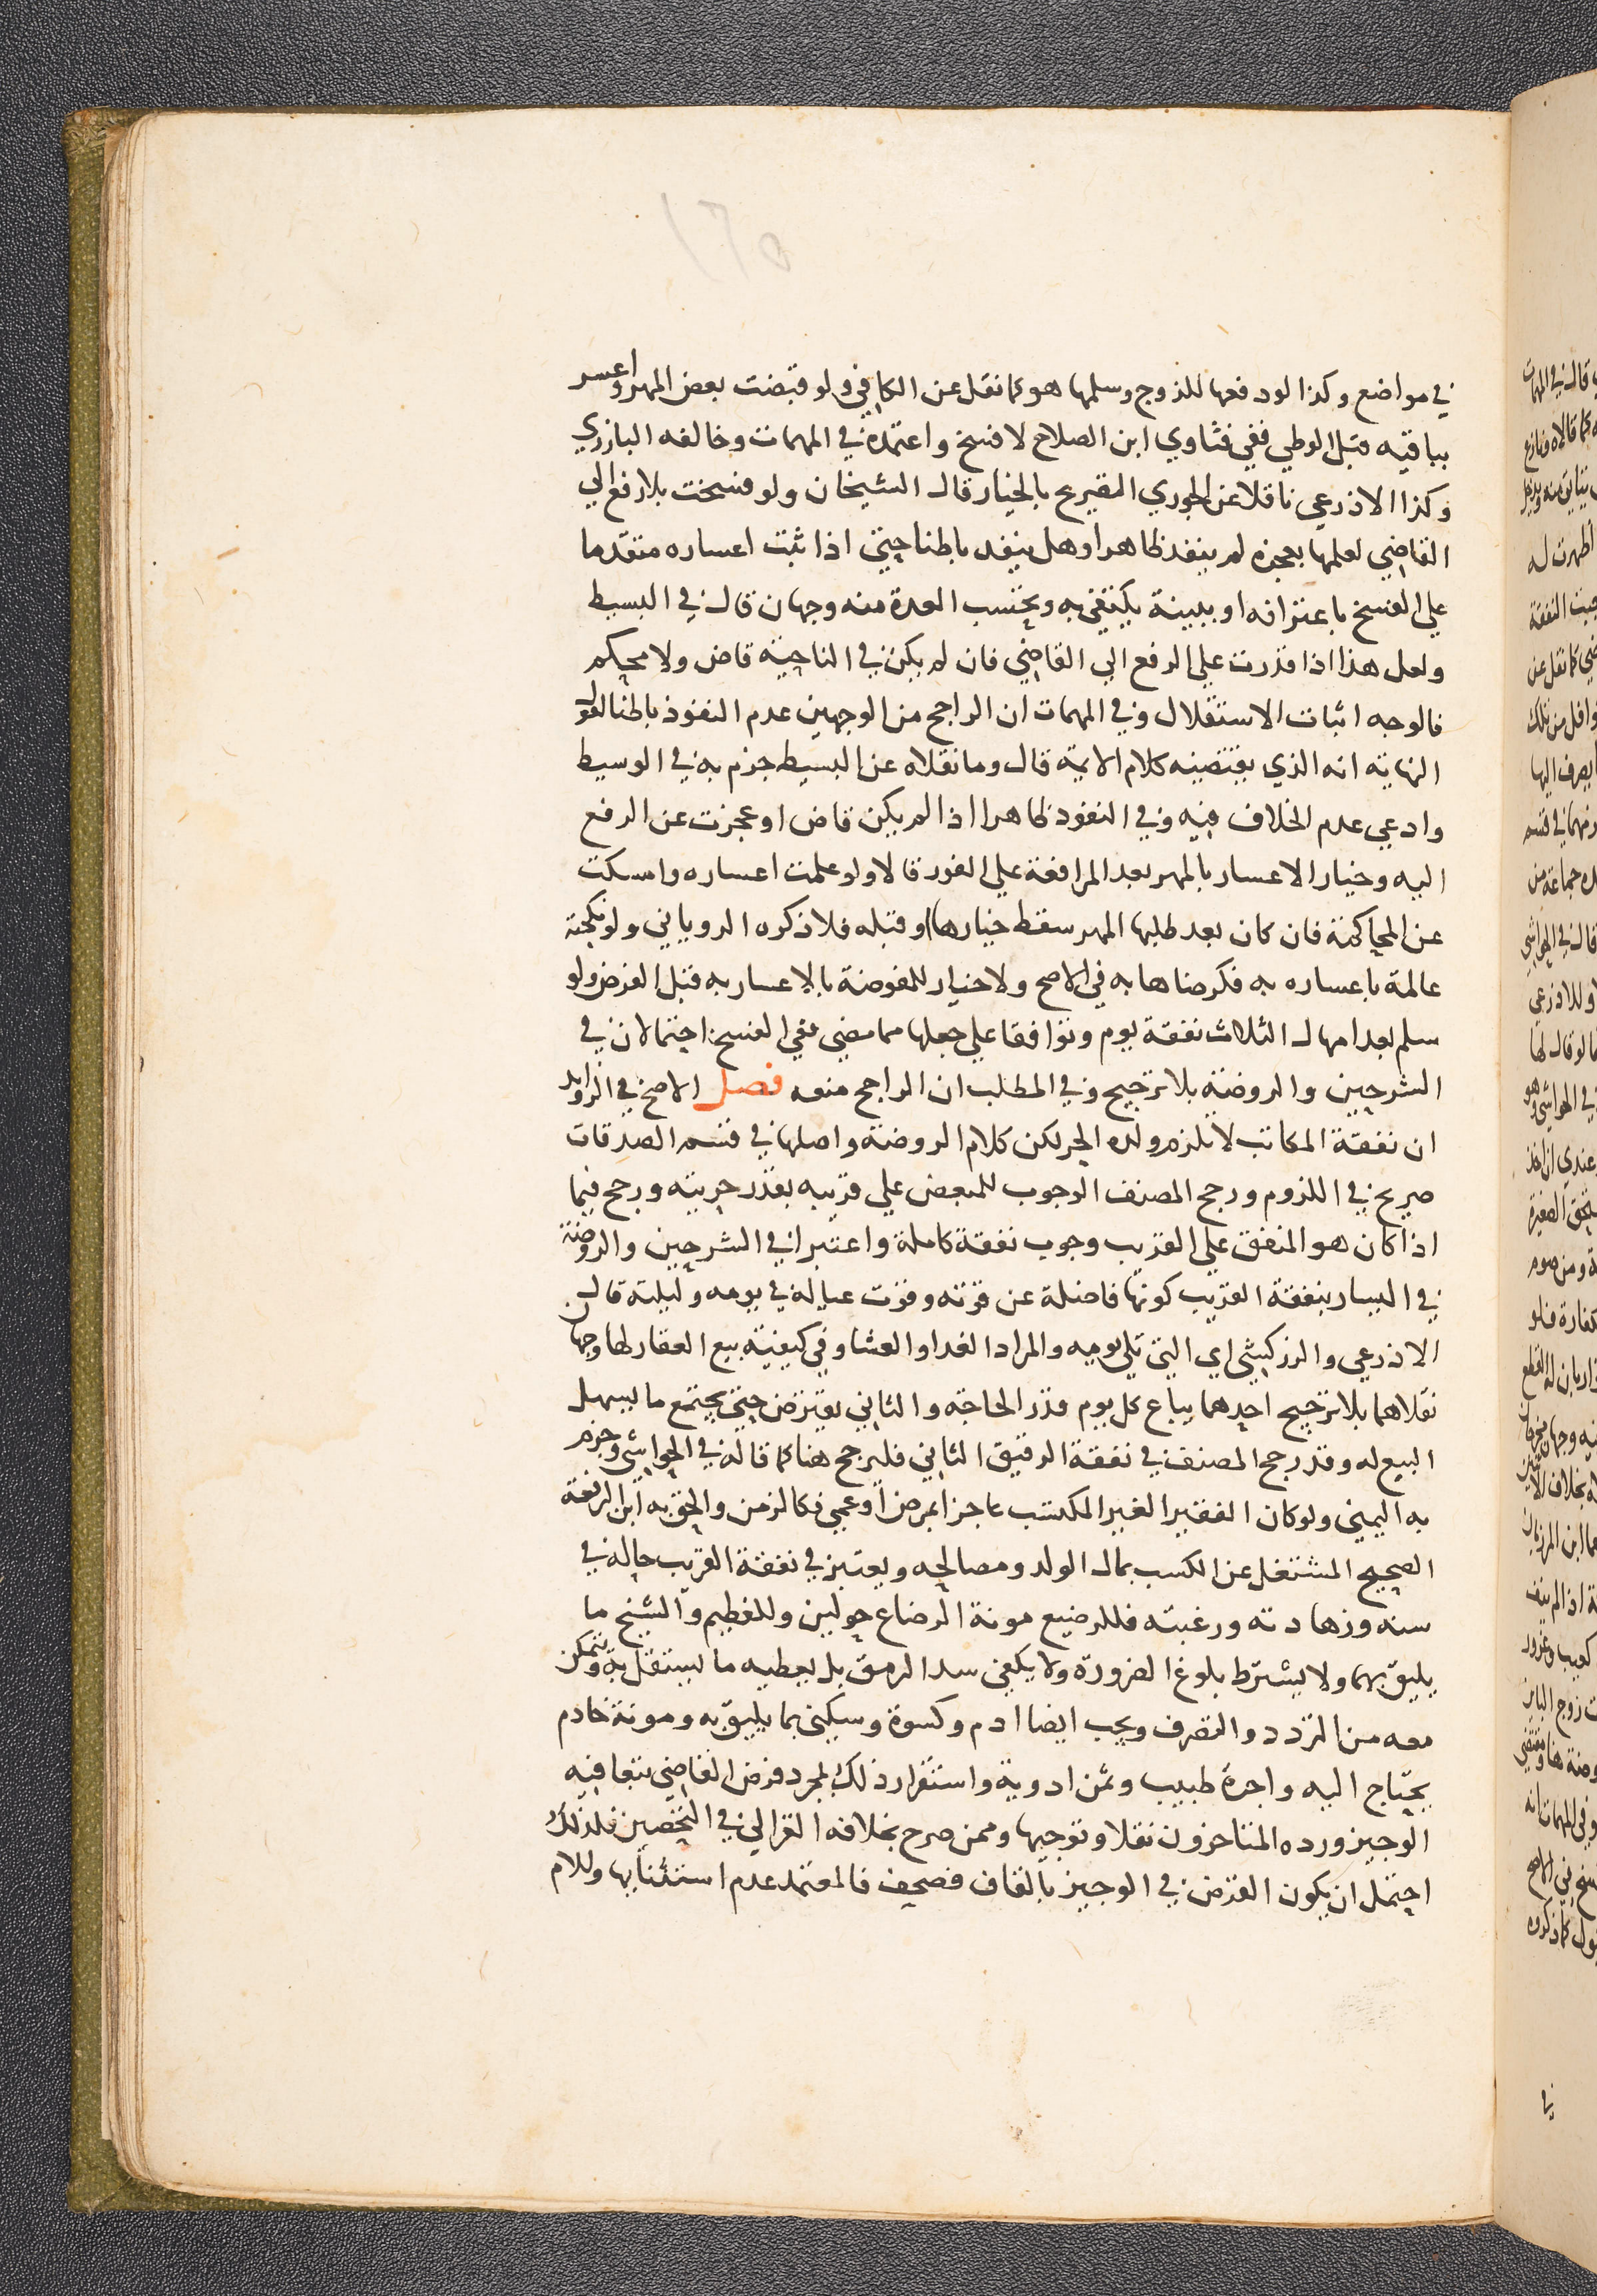 في مواضع وكذا لو دفعها للزوج وسلمها هو كما نقل عن الكافي ولو قبضت بعض المهر واعسر
بباقيه قبل الوطي ففي فتاوي ابن الصلاح لا فسخ واعتمده في المهمات وخالفه البارزي
وكذا الاذرعي ناقلا عن الجوري التصريح بالخيار قال الشيخان ولو فسخت بلا رفع الي
القاضي لعلمها بعجزه لم ينفذ ظاهرا وهل ينفذ باطنا حتي اذا ثبت اعساره متقدما
علي الفسخ باعترافه او ببينة يكتفي به ويحتسب العدة منه وجهان قال في البسيط
ولعل هذا اذا قدرت علي الرفع الي القاضي فان لم يكن في الناحية قاض ولا محكم
فالوجه اثبات الاستقلال وفي المهمات ان الراجح من الوجهين عدم النفوذ باطنا لقول
النهاية انه الذي يقتضيه كلام الايمة قال وما نقلاه عن البسيط جزم به في الوسيط
وادعي عدم الخلاف فيه وفي النفوذ ظاهرا اذا لم يكن قاض او عجزت عن الرفع
اليه وخيار الاعسار بالمهر بعد المرافعة علي الفور قالا ولو علمت اعساره وامسكت
عن المحاكمة فان كان بعد طلبها المهر سقط خيارها او قبله فلا ذكره الروياني ولو نكحته
عالمة باعساره به فكرضاها به في الاصح ولا خيار للمفوضة بالاعسار به قبل الفرض ولو
سلم بعد امهال الثلاث نفقة يوم وتوافقا علي جعلها مما مضي ففي الفسخ احتمالان في
الشرحين والروضة بلا ترجيح وفي المطلب ان الراجح منعه فصل الاصح في الزوايد
ان نفقة المكاتب لا تلزم ولده الحر لكن كلام الروضة واصلها في قسم الصدقات
صريح في اللزوم ورجح المصنف الوجوب للمبعض علي قريبه بقدر حريته ورجح فيما
اذا كان هو المنفق علي القريب وجوب نفقة كاملة واعتبرا في الشرحين والروضة
في اليسار بنفقة القريب كونها فاضلة عن قوته وقوت عياله في يومه وليلته قال
الاذرعي والزركشي اي التي تلي يوميه والمراد الغدا والعشا وفي كيفية بيع العقار لها وجهان
نقلاهما بلا ترجيح احدهما يباع كل يوم قدر الحاجة والثاني يقترض حتي يجتمع ما يسهل
البيع له وقد رجح المصنف في نفقة الرقيق الثاني فليرجح هنا كما قاله في الحواشي وجزم
به اليمني ولو كان الفقير الغير المكتسب عاجزا بمرض او عمي فكالزمن والحق به ابن الرفعة
الصحيح المشتغل عن الكسب بمال الولد ومصالحه ويعتبر في نفقة القريب حاله في
سنه وزهادته ورغبته فللرضيع مونة الرضاع حولين وللفطيم والشيخ ما
يليق بهما ولا يشترط بلوغ الضرورة ولا يكفي سد الرمق بل يعطيه ما يستقل به ويتمكن
معه من التردد والتصرف ويجب ايضا ادم وكسوة وسكني بما يليق به ومونة خادم
يحتاج اليه واجرة طبيب وثمن ادوية واستقرار ذلك بمجرد فرض القاضي تبعا فيه
الوجيز ورده المتاخرون نقلا وتوجيها وممن صرح بخلافه الغزالي في التحصين فلذلك
احتمل ان يكون الفرض في الوجيز بالقاف فصحف فالمعتمد عدم استثنايها وللام